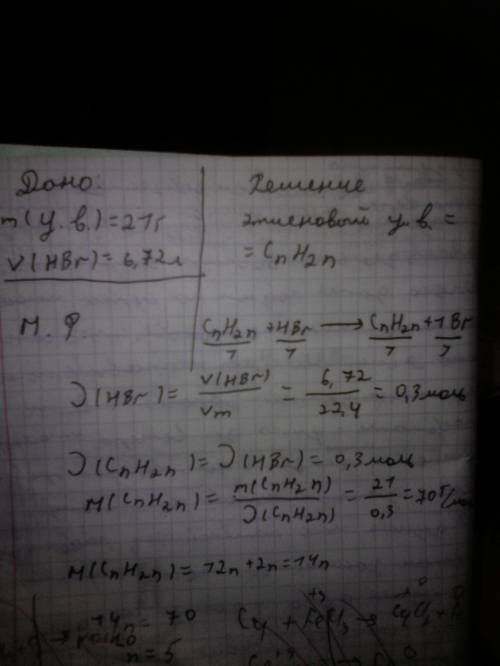 Дано:
m(у.в.)=21г
V(HBr)=6,72л
М.Ф.
Решение
этиленовый у.в. =
= CnH2n
CnH2n + HBr ⟶ CnH2n+1Br
1 1 1 1
ν(HBr) = V(HBr)/Vm = 6,72/22,4 = 0,3моль
ν(CnH2n) = ν(HBr) = 0,3моль
M(CnH2n) = m(CnH2n)/ν(CnH2n) = 21/0,3 = 70г/моль
M(CnH2n) = 12n+2n=14n
14n = 70
n=5